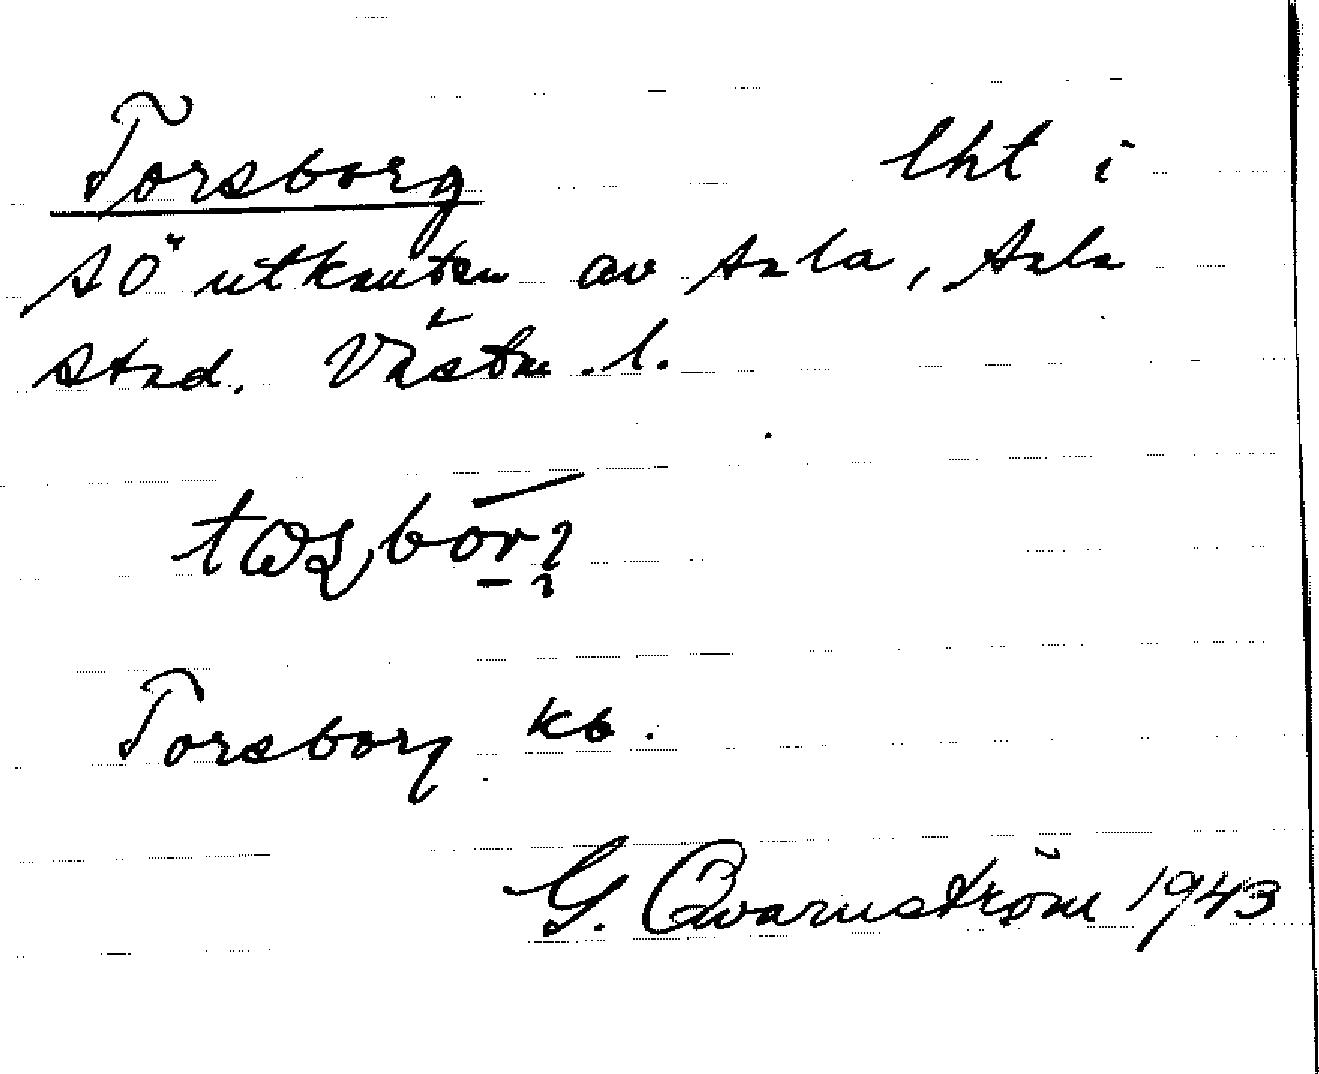 Torsborg lht i
SÖ utkanten av Sala, Sala
stad. Västm. l.
Torsborg kb.
G. Qvarnström 1943